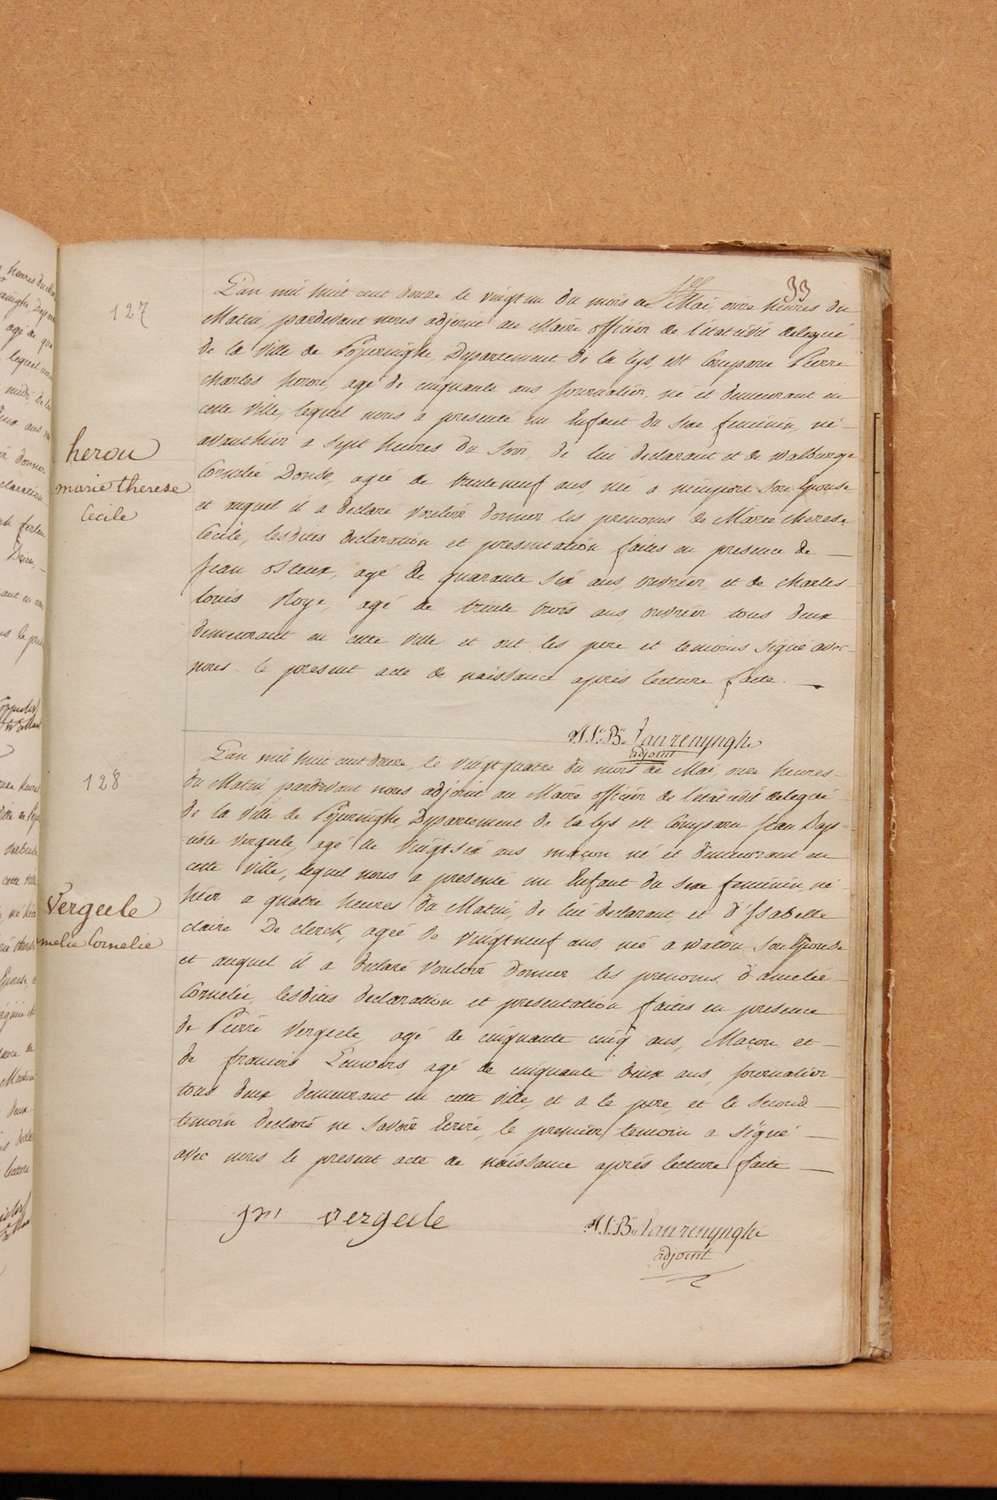 33
127
L'an mil huit cent douze le vingt un du mois de Mai, onze heures du
Matin, pardevant nous adjoint au Maire officier de l'etat civil delegué
de la Ville de Poperinghe, Departement de la Lys, est Comparu Pierre
charles herou, agé de cinquante ans journalier, né et demeurant en
cette Ville, lequel nous a presenté un Enfant du sexe feminin, né
avanthier a sept heures du Soir, de lui declarant et de Walburge
Cornelie Donde, agée de trente neuf ans, née a nieuport Son Epouse
et auquel il a declaré vouloir donner les prenoms de Marie therese
Cecile, lesdites declaration et presentation faites en presence de
Jean osteux, agé de quarante six ans, ouvrier et de charles
louis Noye, agé de trente trois ans ouvrier tous deux
demeurant en cette Ville et ont les pere et temoins signé avec
nous le present acte de naissance après lecture faite.
herou
marie therese
Cecile
Laurenynghe
adjoint
128
L'an mil huit cent douze, le vingt quatre du mois de Mai, onze heures
du Matin, pardevant nous adjoint au Maire officier de l'etat civil delegué
de la Ville de Poperinghe, Departement de la Lys est Comparu Jean Bap-
tiste Vergeele, agé de vingt six ans maçon né et demeurant en
cette Ville, lequel nous a presenté un Enfant du sexe feminin, né
hier a quatre heures du Matin, de lui declarant, et d'Isabelle
claire De clerck, agée de vingt neuf ans, née a watou, Son Epouse
et auquel il a declaré vouloir donner les prenoms d'amelie
Cornelie, lesdites declaration et presentation faites en presence
de Pierre Vergeele, agé de cinquante cinq ans, Maçon et
de francois Lemoirs, agé de cinquante deux ans, journalier
tous deux demeurant en cette Ville, et a le pere, et le second
temoin declaré ne savoir Ecrire, le premier temoin a signé
avec nous le present acte de naissance après lecture faite
Vergeele
melie Cornelie
vergeele
Laurenynghe
adjoint